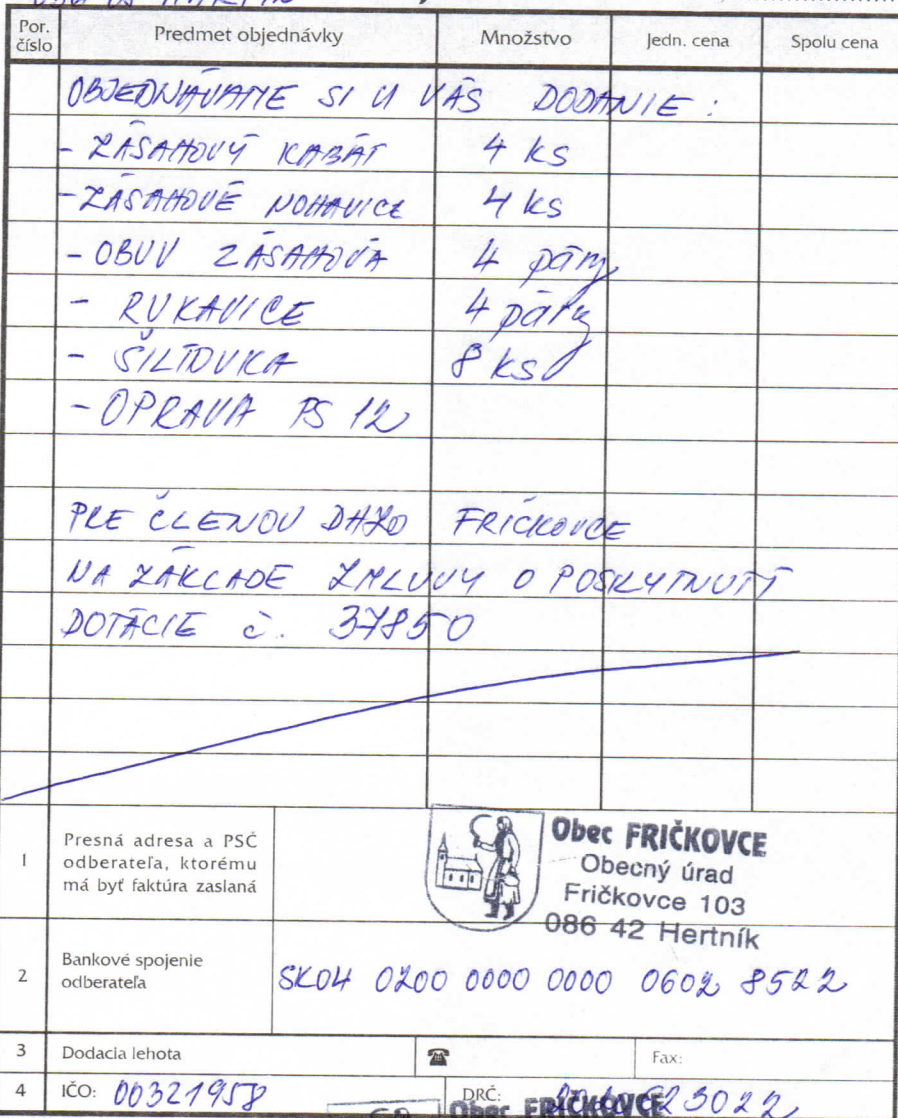 MARTIN
Por. číslo Predmet objednávky Množstvo Jedn. cena Spolu cena
OBJEDNÁVAME SI U VÁS DODANIE :
- ZÁSAHOVÝ KABÁT 4 ks
- ZÁSAHOVÉ NOHAVICE 4 ks
- OBUV ZÁSAHOVÁ 4 páry
- RUKAVICE 4 páry
- ŠILTOVKA 8 ks
- OPRAVA PS 12
PRE ČLENOV DHZO FRIČKOVCE
NA ZÁKLADE ZMLUVY O POSKYTNUTÍ
DOTÁCIE č. 37850
1 Presná adresa a PSČ
odberateľa, ktorému
má byť faktúra zaslaná
Obec FRIČKOVCE
Obecný úrad
Fričkovce 103
086 42 Hertník
2 Bankové spojenie
odberateľa
SK04 0200 0000 0000 0602 8522
3 Dodacia lehota ☎ Fax:
4 IČO: 00321958 DRČ:
Obec FRIČKOVCE